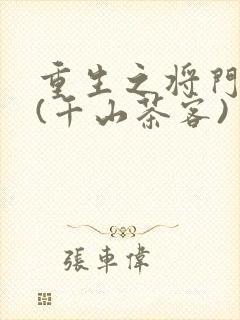 重生之将門
(千山茶客)
張車偉